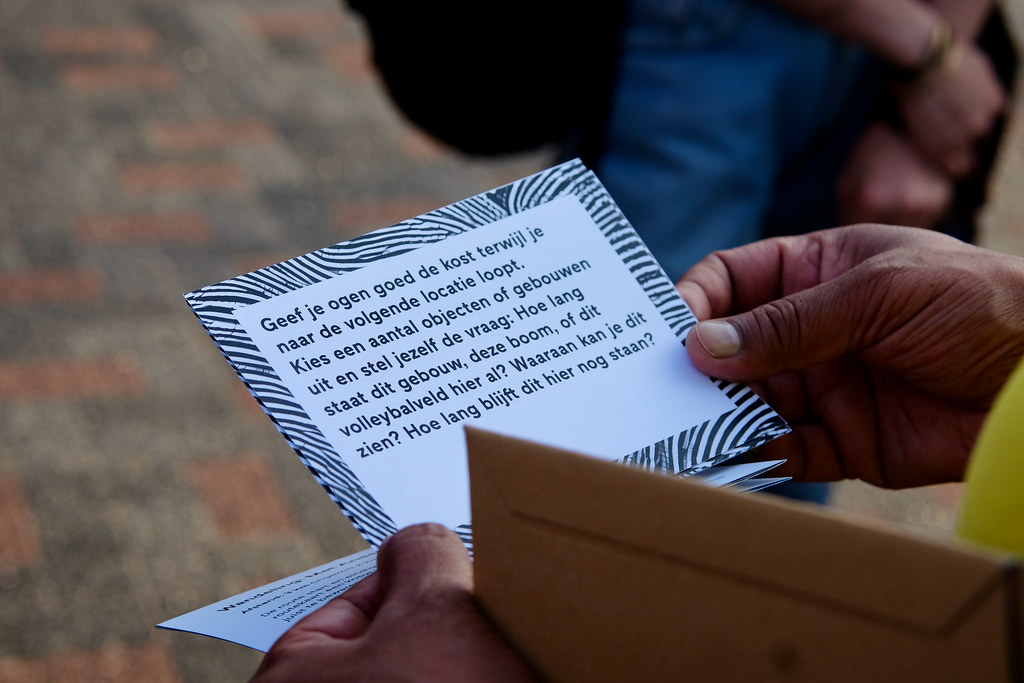 Geef je ogen goed de kost terwijl je
naar de volgende locatie loopt.
Kies een aantal objecten of gebouwen
uit en stel jezelf de vraag: Hoe lang
staat dit gebouw, deze boom, of dit
volleybalveld hier al? Waaraan kan je dit
zien? Hoe lang blijft dit hier nog staan?